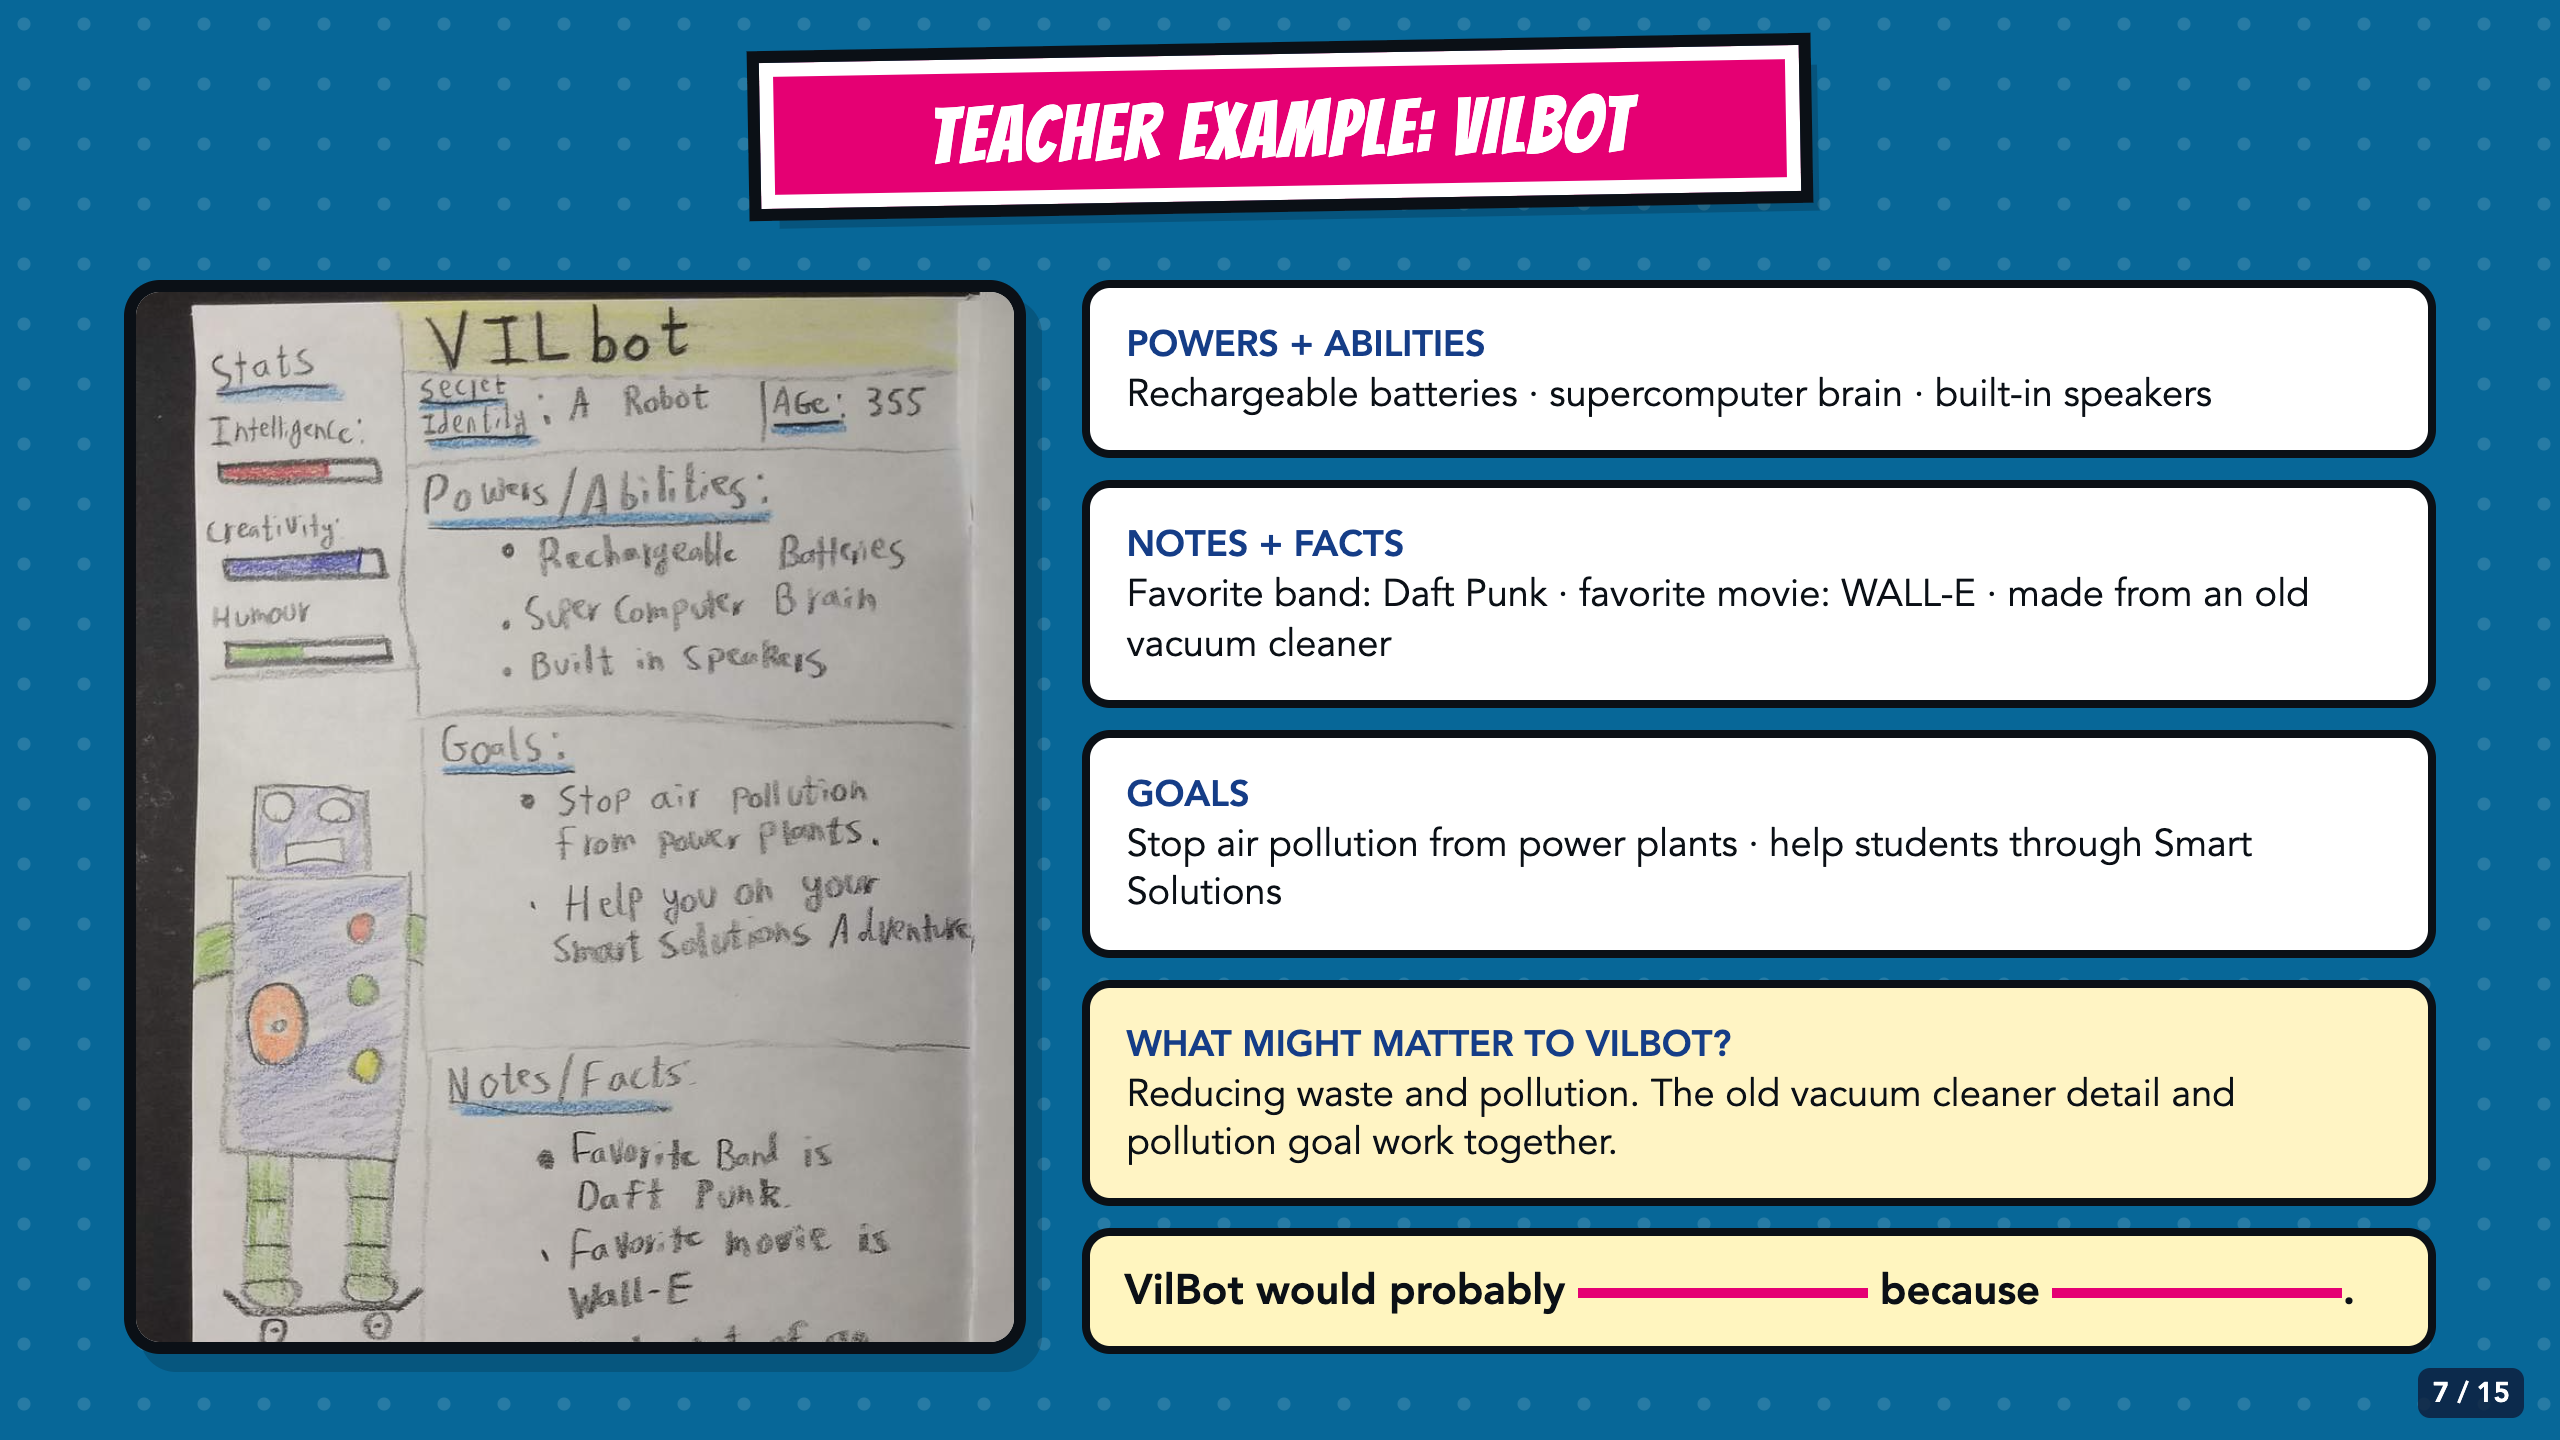 TEACHER EXAMPLE: VILBOT
VILbot
Stats
Intelligence:
Creativity:
Humour
Secret
Identity: A Robot
AGe: 355
Powers/Abilities:
• Rechargeable Batteries
• Super Computer Brain
• Built in speakers
Goals:
• Stop air pollution
from power plants.
• Help you on your
Smart Solutions Adventure
Notes/Facts:
• Favorite Band is
Daft Punk.
• Favorite movie is
Wall-E
POWERS + ABILITIES
Rechargeable batteries · supercomputer brain · built-in speakers
NOTES + FACTS
Favorite band: Daft Punk · favorite movie: WALL-E · made from an old
vacuum cleaner
GOALS
Stop air pollution from power plants · help students through Smart
Solutions
WHAT MIGHT MATTER TO VILBOT?
Reducing waste and pollution. The old vacuum cleaner detail and
pollution goal work together.
VilBot would probably because .
7 / 15